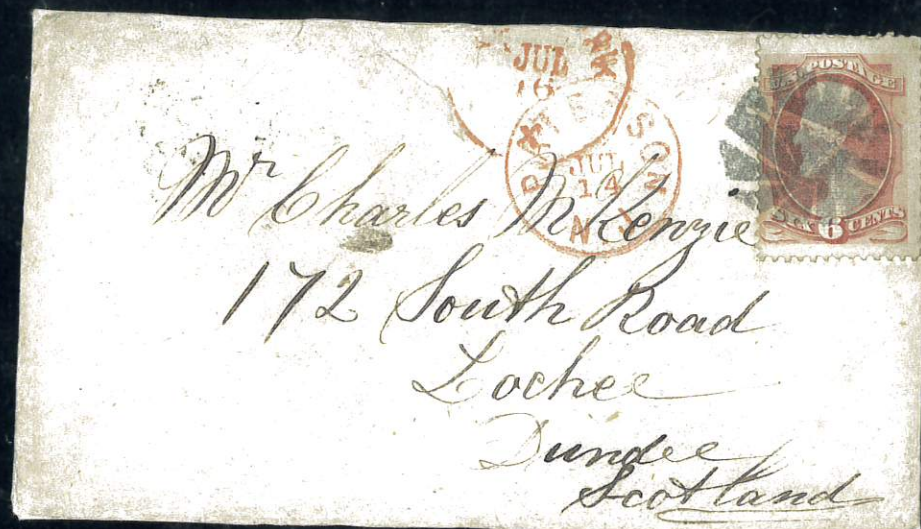 JUL
16
PATERSON N.J.
JUL
14
U.S. POSTAGE
SIX 6 CENTS
Mr Charles McKenzie
172 South Road
Lochee
Dundee
Scotland